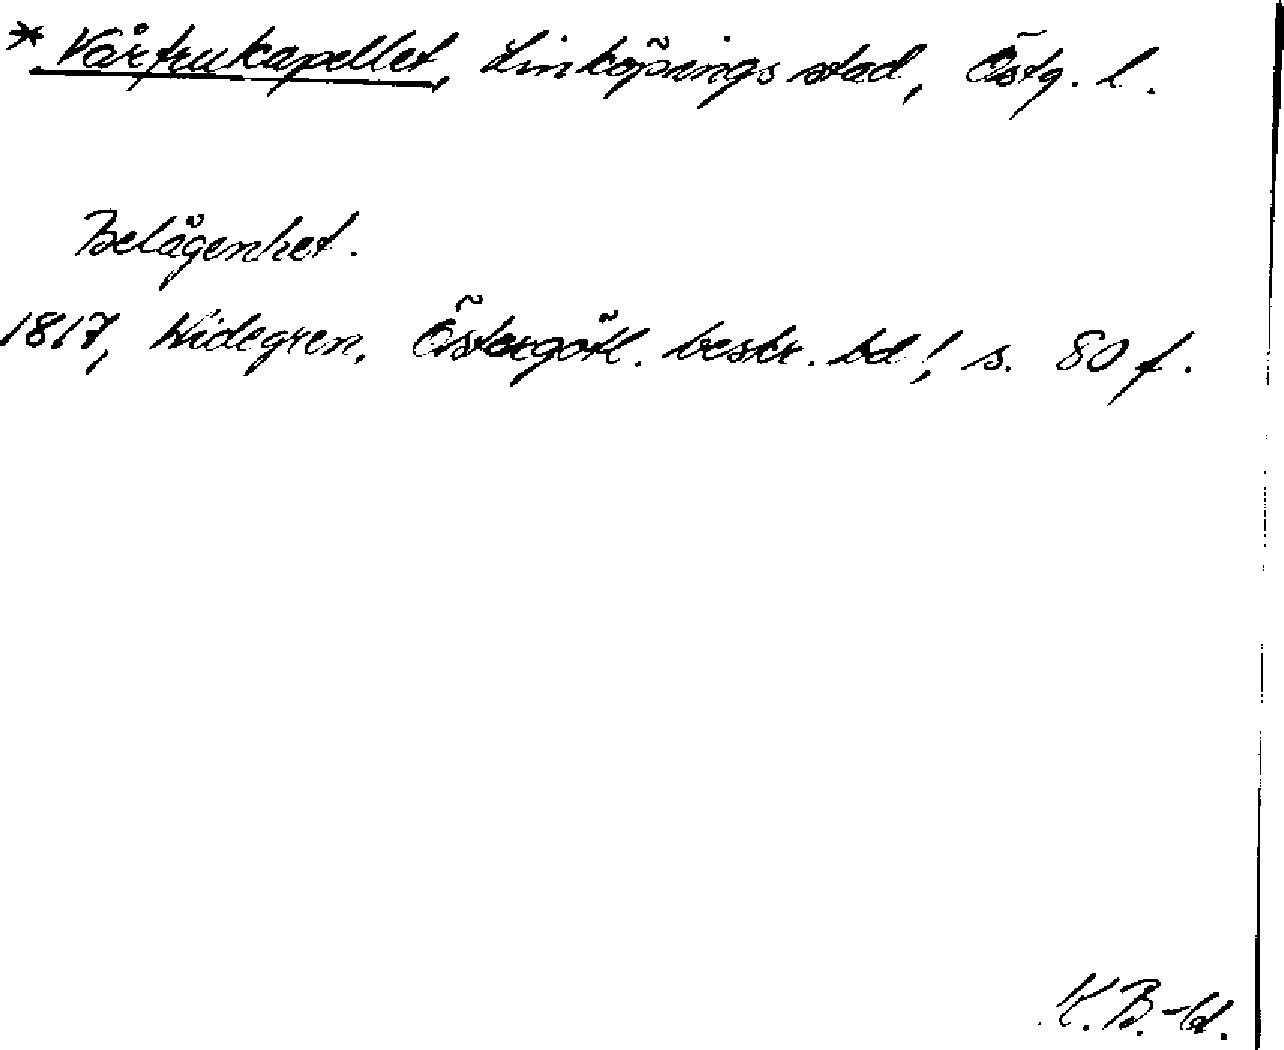 * Vårfrukapellet, Linköpings stad, Östg. l.
Belägenhet.
1817, Widegren, Östergötl. beskr. bd 1, s. 80 f.
K. B-ld.